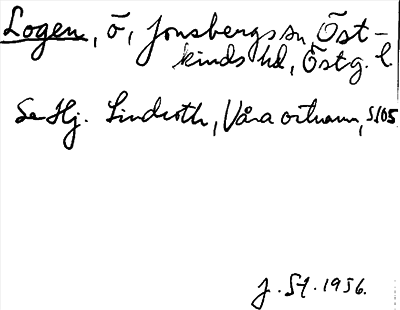 Logen, ö, Jonsbergs sn, Öst-
kinds hd, Östg. l
Se Hj. Lindroth, Våra ortnamn, s 105
J. St. 1956.